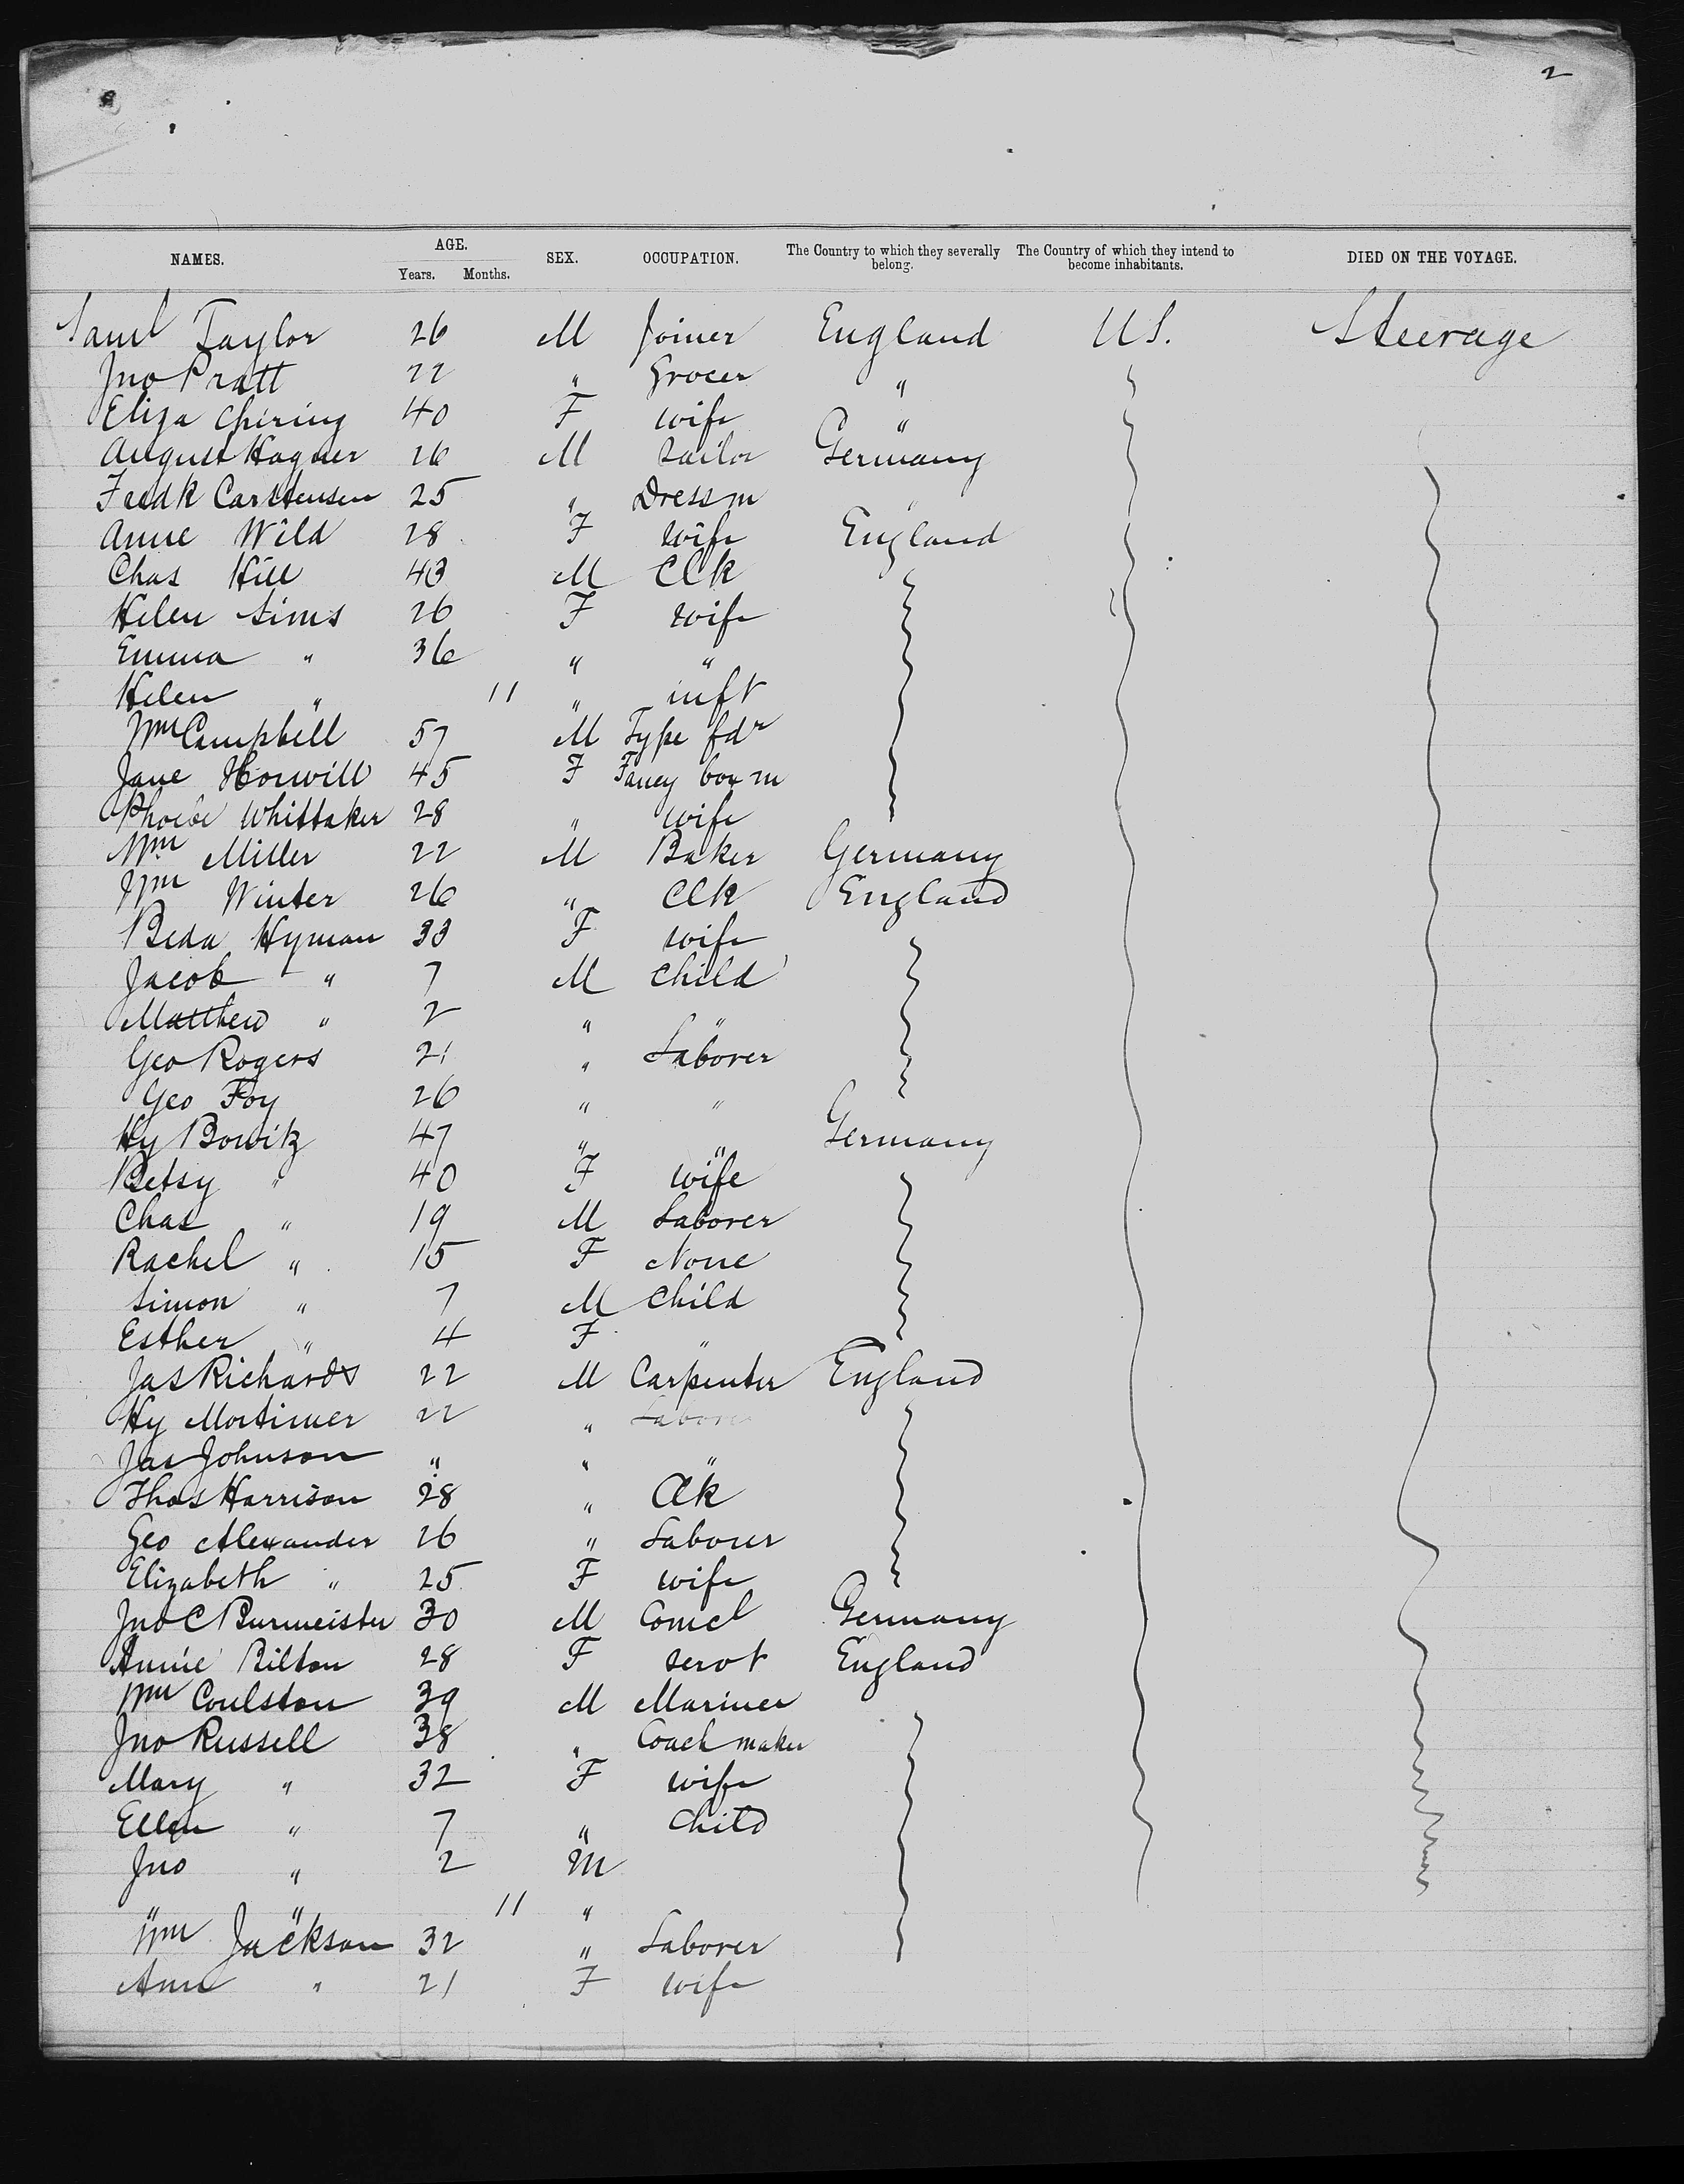 2
NAMES. AGE. Years. Months. SEX. OCCUPATION. The Country to which they severally belong. The Country of which they intend to become inhabitants. DIED ON THE VOYAGE.
Saml Taylor 26 M Joiner England US. Steerage
Jno Pratt 22 " Grocer "
Eliza Chiring 40 F wife "
August Hagner 26 M Sailor Germany
Fredk Carstensen 25 " Dress m "
Anne Wild 28 F wife England
Chas Hill 43 M Clk
Helen Sims 26 F wife
Emma " 36 " "
Helen " 11 " inft
Wm Campbell 57 M Type fdr
Jane Horwill 45 F Fancy box m
Phoebe Whittaker 28 " wife
Wm Miller 22 M Baker Germany
Wm Winter 26 " Clk England
Beda Hyman 33 F wife
Jacob " 7 M Child
Matthew " 2 " "
Geo Rogers 21 " Laborer
Geo Foy 26 " "
Hy Bowitz 47 " " Germany
Betsy " 40 F wife
Chas " 19 M Laborer
Rachel " 15 F None
Simon " 7 M Child
Esther " 4 F "
Jas Richards 22 M Carpenter England
Hy Mortimer 22 " Laborer
Jas Johnson " " "
Thos Harrison 28 " Clk
Geo Alexander 26 " Laborer
Elizabeth " 25 F wife
Jno C Burmeister 30 M Comcl Germany
Annie Bilton 28 F servt England
Wm Coulston 39 M Mariner
Jno Russell 38 " Coach maker
Mary " 32 F wife
Ellen " 7 " Child
Jno " 2 M
" " 11 "
Wm Jackson 32 " Laborer
Ann " 21 F wife